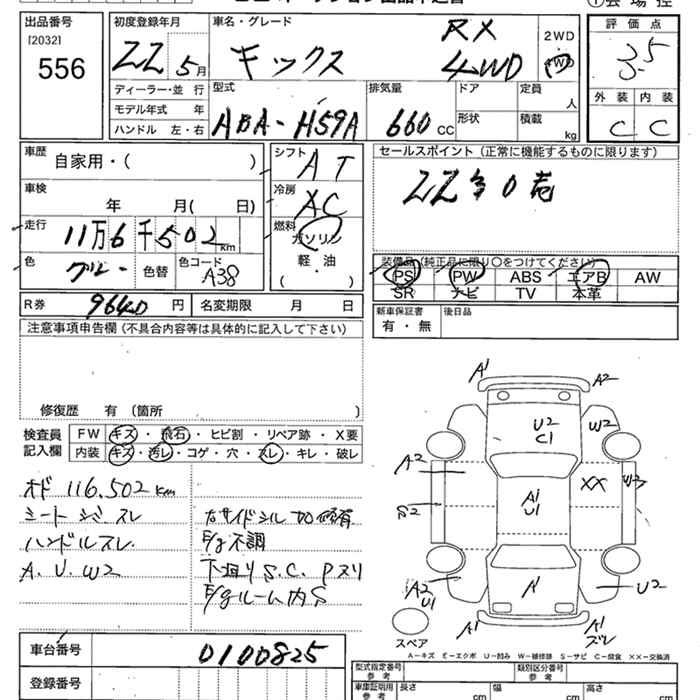 出品番号 初度登録年月 車名・グレード RX 2WD 評価点
[2032] 556 22 5月 キックス 4WD 4WD 3.5
ディーラー・並行 型式 排気量 ドア 定員 人 外装 内装
モデル年式 年 ABA-H59A 660 CC 形状 積載 kg C C
ハンドル 左・右
車歴 自家用・( ) シフト AT セールスポイント (正常に機能するものに限ります)
車検 年 月( 日) 冷房 AC
走行 11万6千502km 燃料 ガソリン
軽・油
( )
色 グレー 色替 色コード A38 装備品 (純正品に限り○をつけてください)
PS PW ABS エアB AW
SR ナビ TV 本革
R券 9640円 名変期限 月 日 新車保証書 後日品
有・無
注意事項申告欄 (不具合内容等は具体的に記入して下さい)
修復歴 有 (箇所 )
検査員 FW キズ・飛石・ヒビ割・リペア跡・X要
記入欄 内装 キズ・汚レ・コゲ・穴・スレ・キレ・破レ
オド 116,502km
シートシミ スレ
ハンドルスレ E/g不調
A.U.W2 下廻りS.C.Pヌリ
E/gルーム内S
A1 A2
U2 W2
C1
A2 XX W3
S2 A1
U1
A2 A U2
U1
A1 A1
ズレ
スペア
A-キズ E-エクボ U-凹み W-補修跡 S-サビ C-腐食 XX-交換済
車台番号 0100825
型式指定番号 類別区分番号
参考 参考
登録番号 車庫証明用 長さ cm 幅 cm 高さ cm
参考